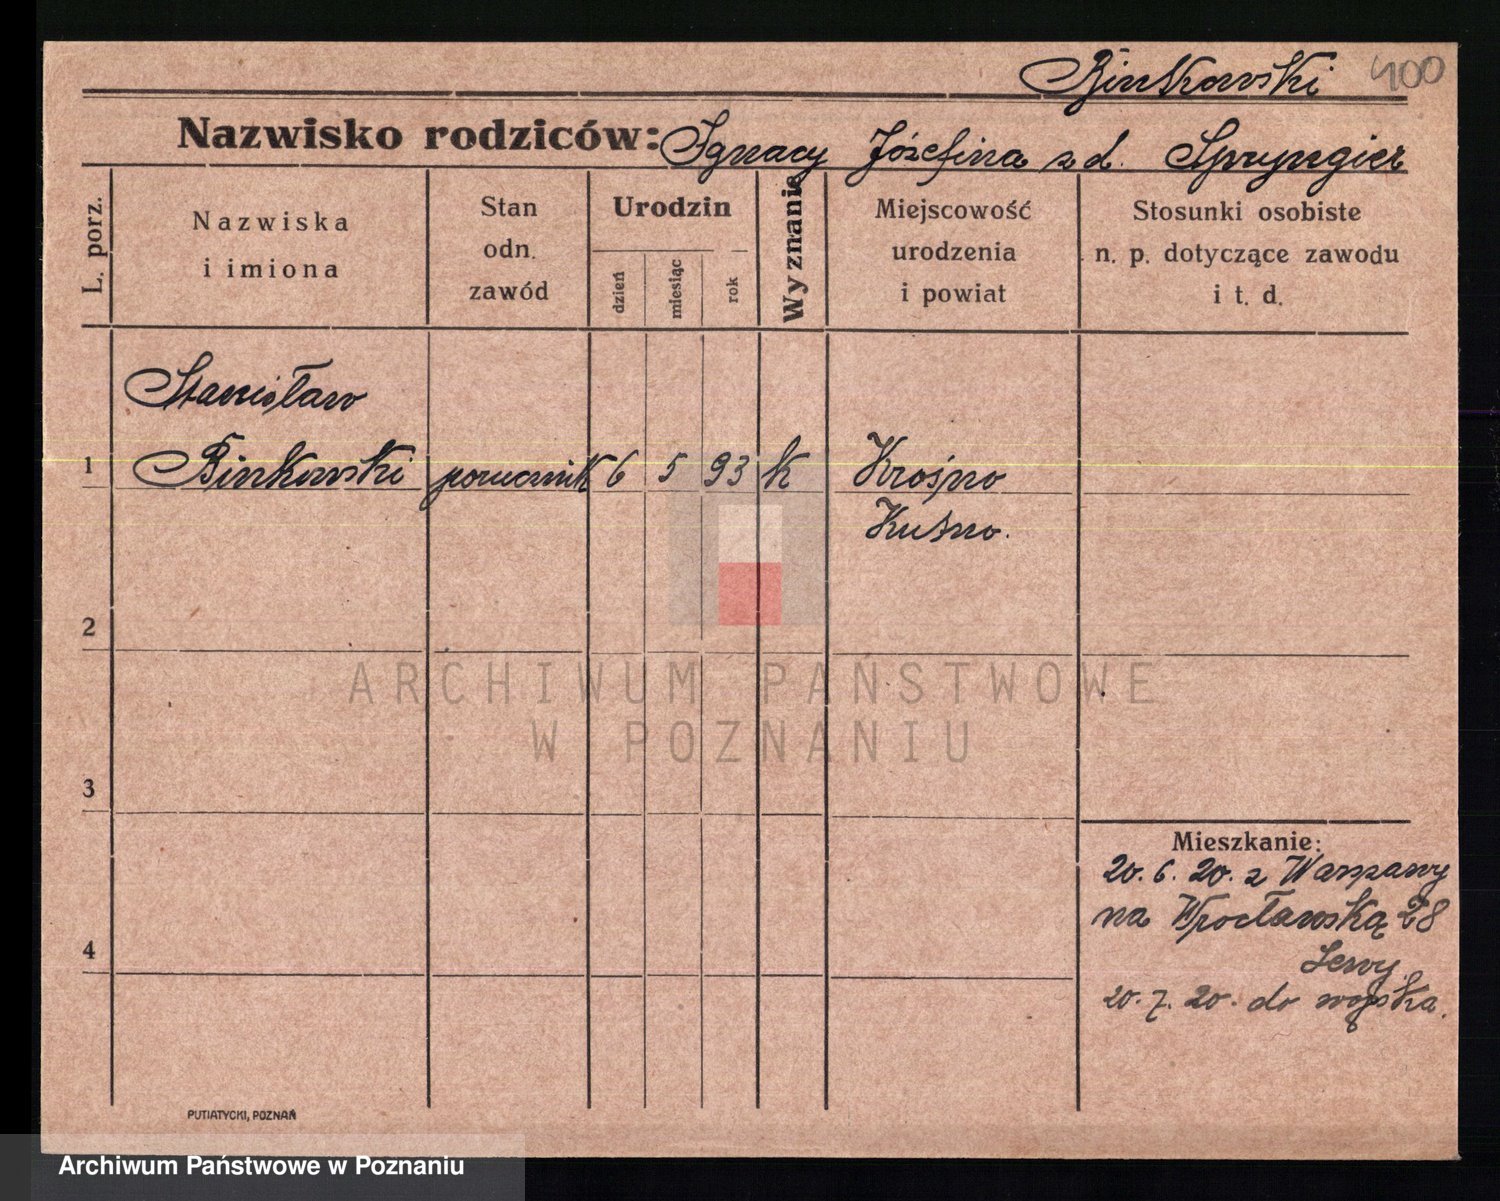 Binkowski 400
Nazwisko rodziców: Ignacy Józefina z d. Szpryngier
L. porz.
Nazwiska
i imiona
Stan
odn.
zawód
Urodzin
dzień
miesiąc
rok
Wyznanie
Miejscowość
urodzenia
i powiat
Stosunki osobiste
n. p. dotyczące zawodu
i t. d.
Stanisław
1 Binkowski porucznik 6 5 93 k Krośno
Kutno.
2
ARCHIWUM PAŃSTWOWE
W POZNANIU
3
Mieszkanie:
20. 6. 20. z Warszawy
na Wrocławską 28
4
20. 7. 20. do wojska.
PUTIATYCKI, POZNAŃ
Archiwum Państwowe w Poznaniu